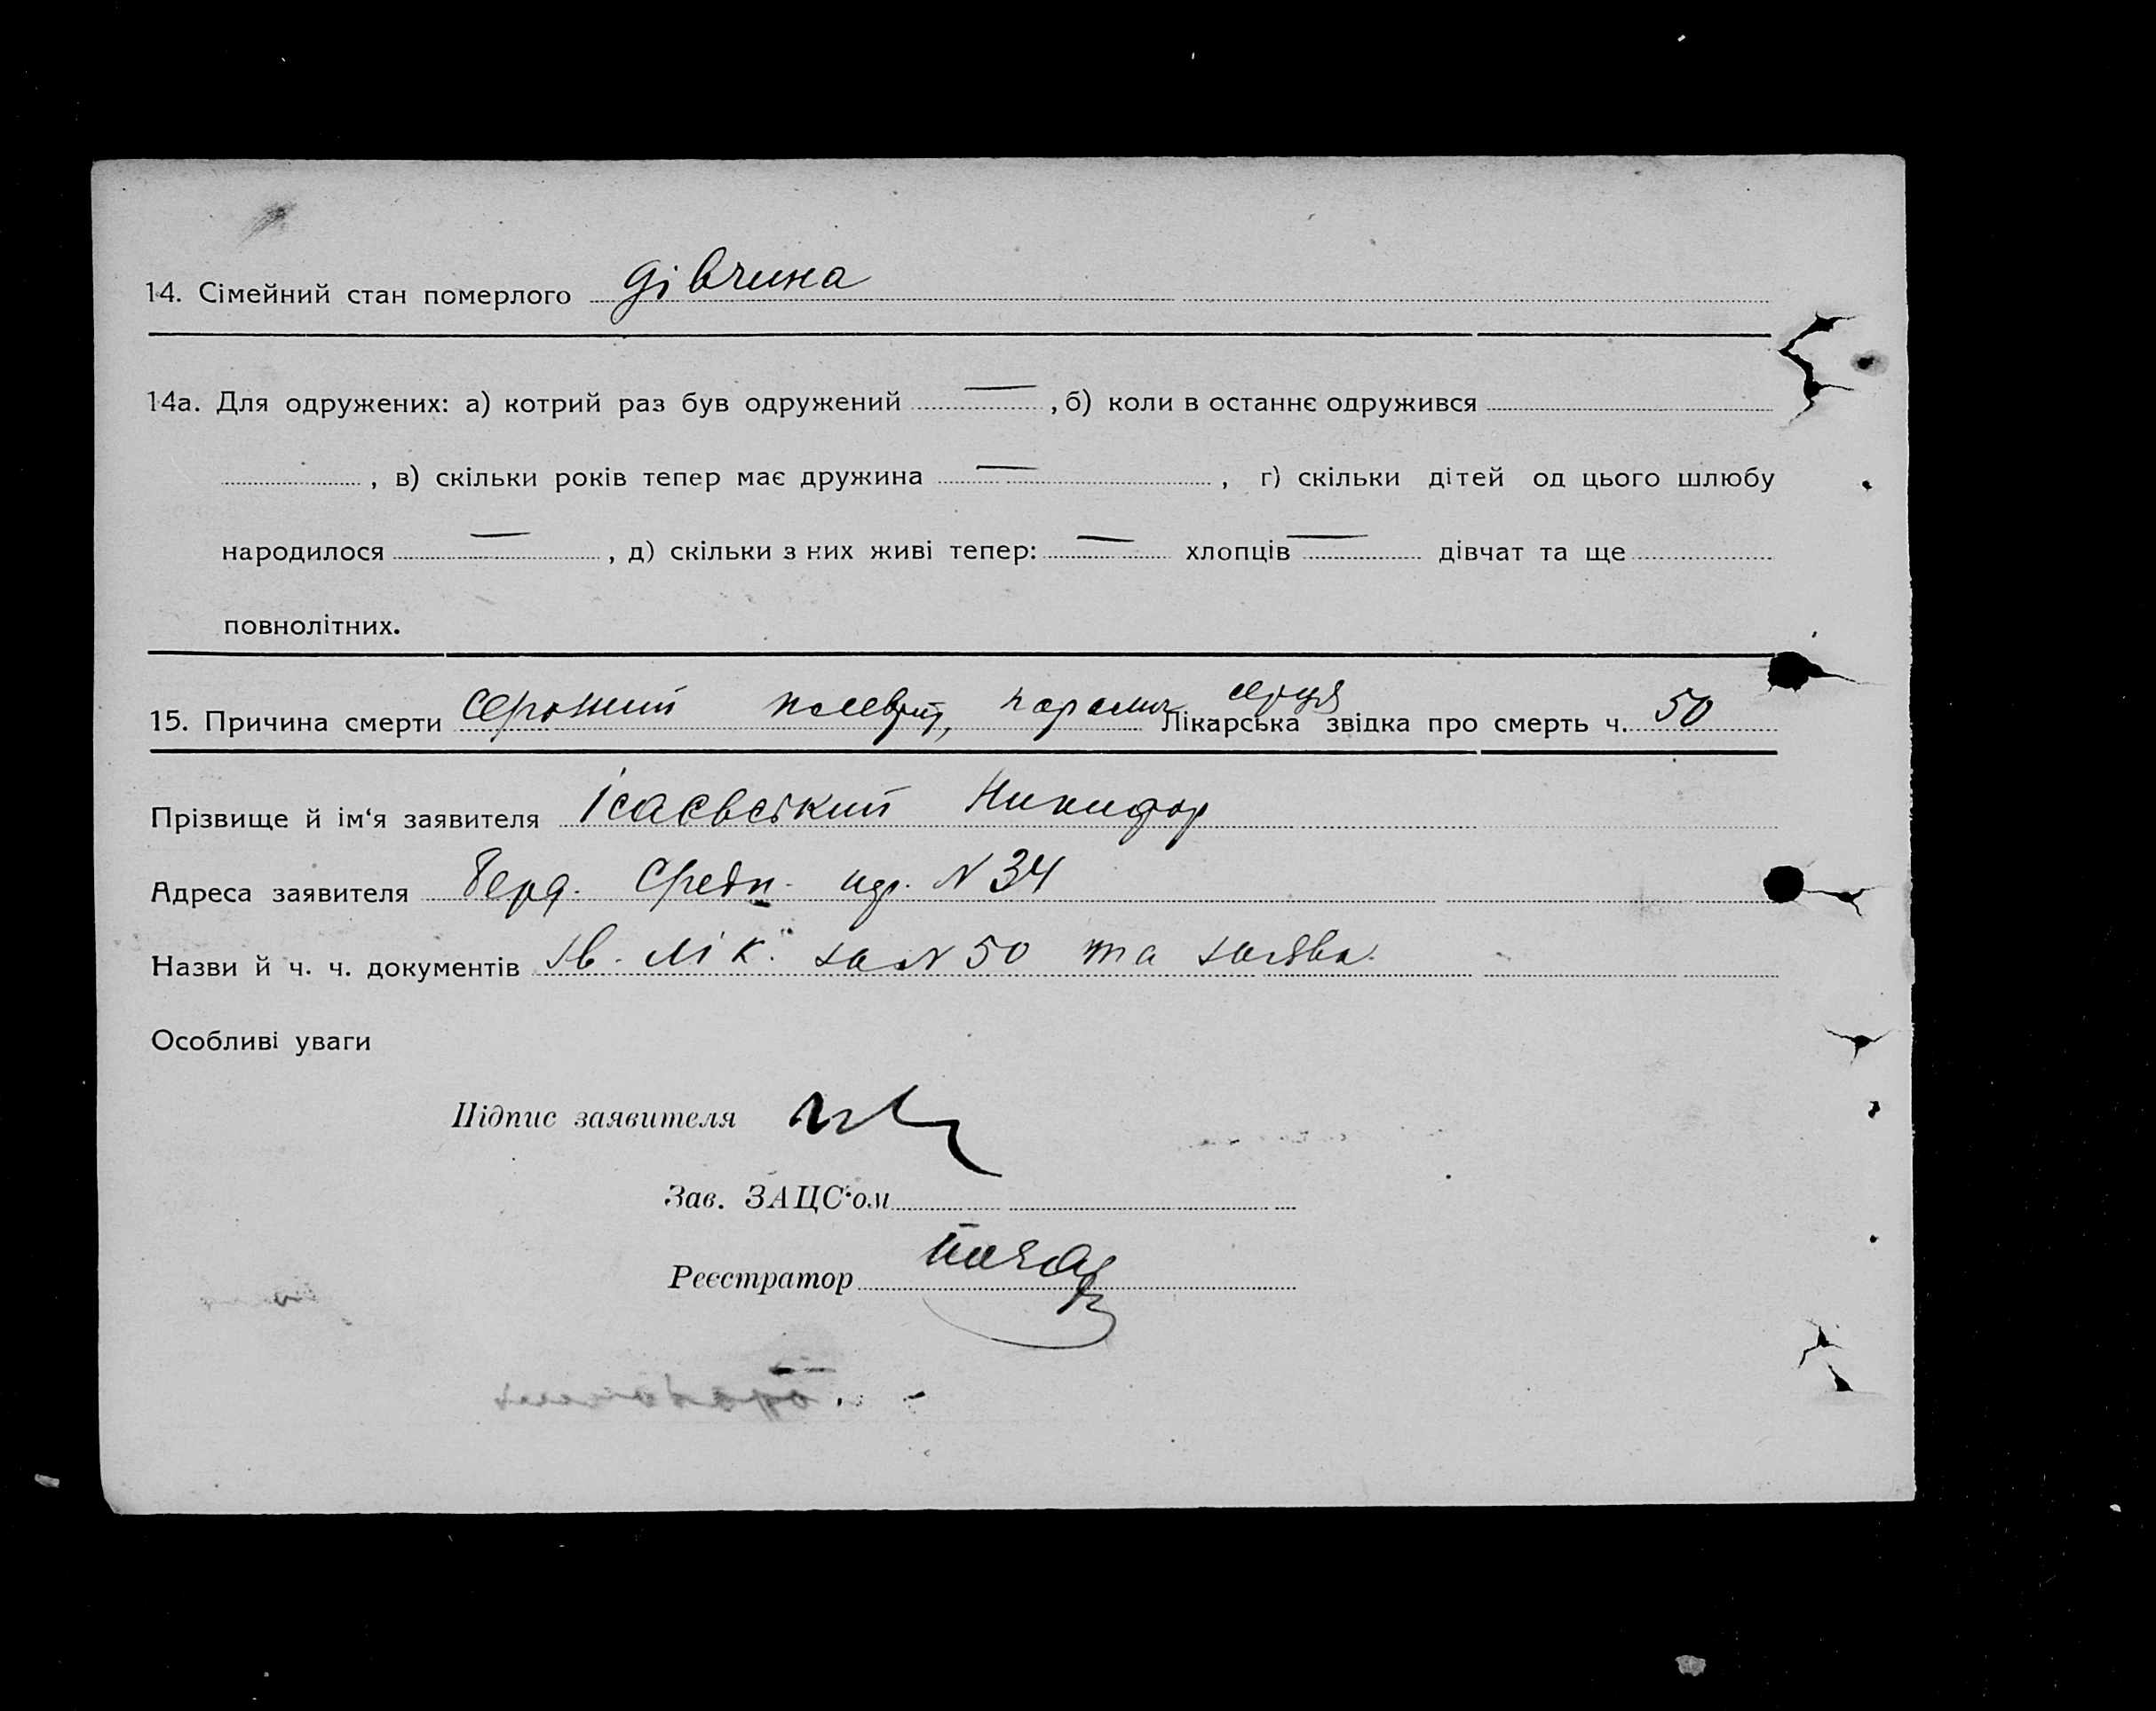 14. Сімейний стан померлого дівчина
14а. Для одружених: а) котрий раз був одружений — , б) коли в останнє одружився
, в) скільки років тепер має дружина — , г) скільки дітей од цього шлюбу
народилося — , д) скільки з них живі тепер: — хлопців — дівчат та ще
повнолітних.
15. Причина смерти серозний плеврит, параліч серця Лікарська звідка про смерть ч. 50
Прізвище й ім‘я заявителя Ісаєвський Никифор
Адреса заявителя Берд. Средн. N 34
Назви й ч. ч. документів зв. лік. за N 50 та заява.
Особливі уваги
Підпис заявителя
Зав. ЗАЦС‘ом
Реєстратор